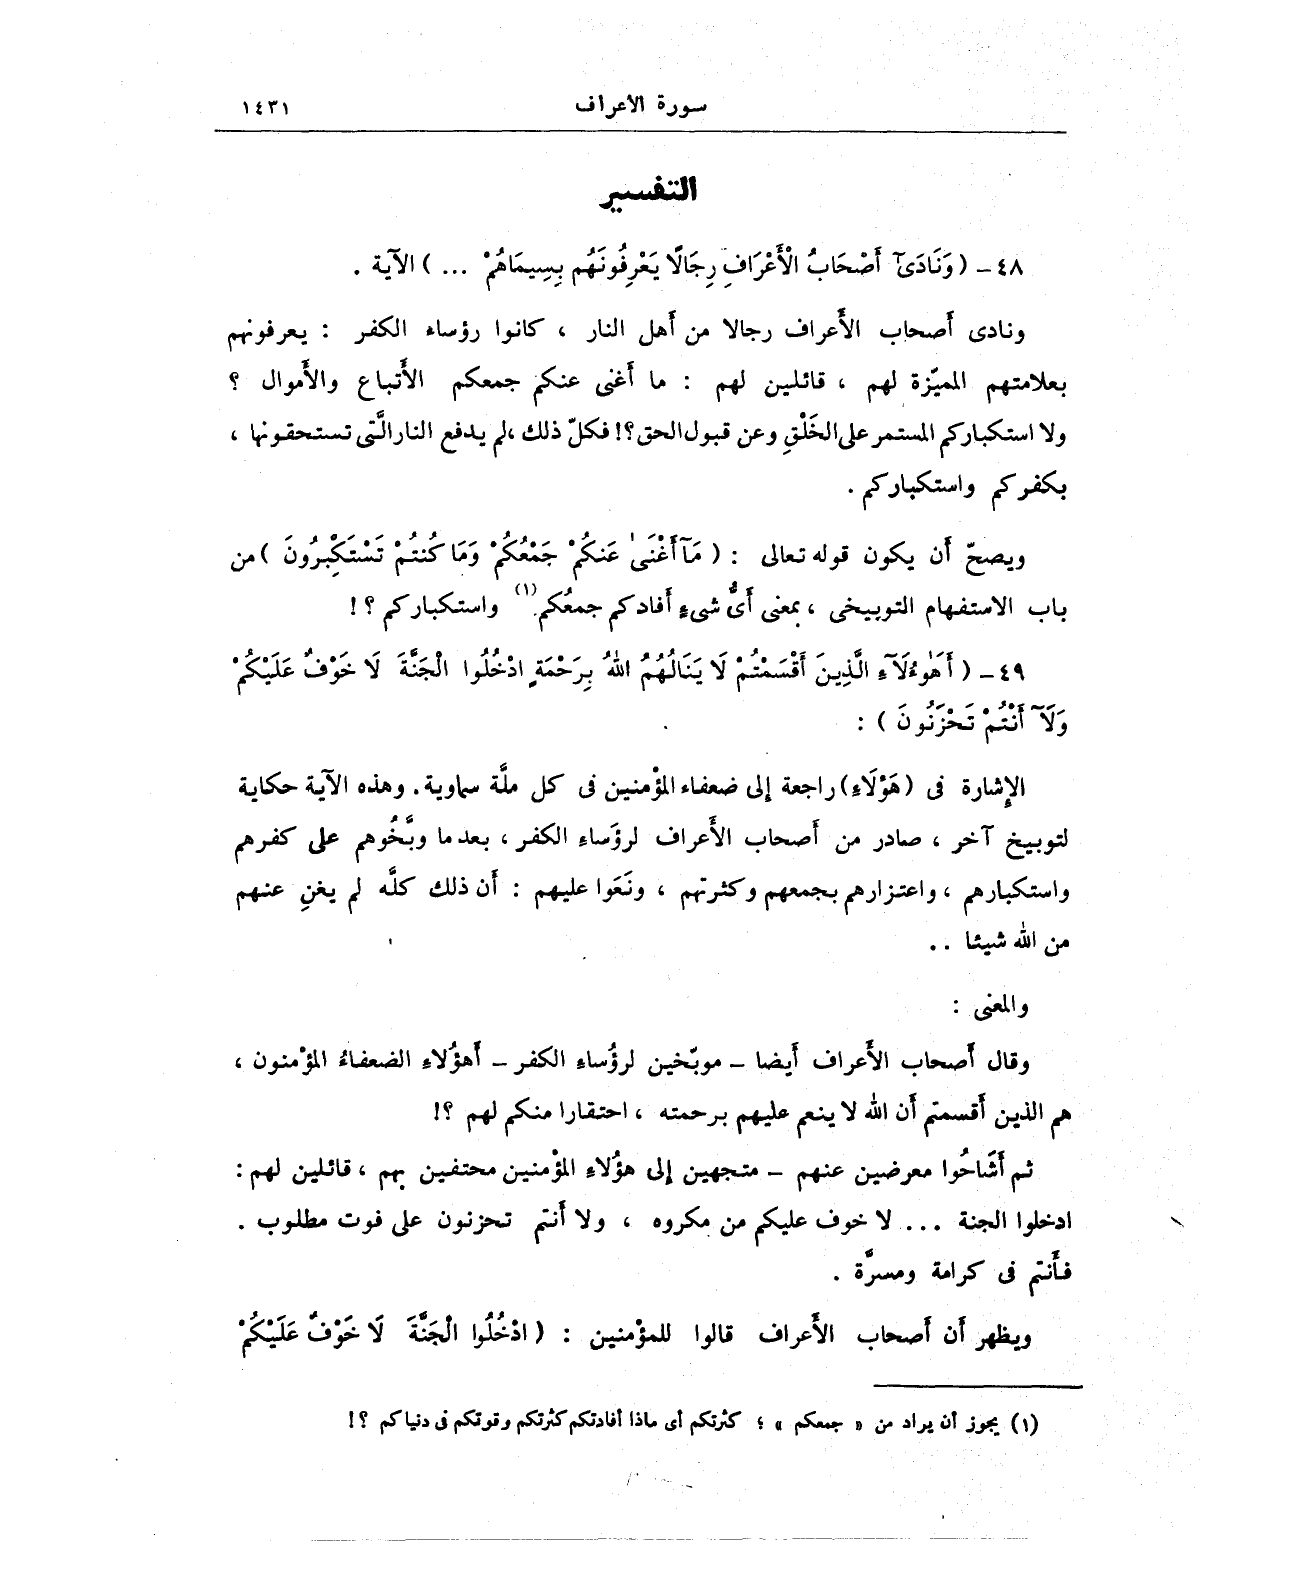 سورة الأعراف ١٤٣١
التفسير
٤٨ – ( وَنَادَىٰٓ أَصْحَابُ الْأَعْرَافِ رِجَالًا يَعْرِفُونَهُم بِسِيمَاهُمْ ... ) الآية .
ونادى أصحاب الأعراف رجالا من أهل النار ، كانوا رؤساء الكفر : يعرفونهم
بعلامتهم المميّزة لهم ، قائلين لهم : ما أغنى عنكم جمعكم الأتباع والأموال ؟
ولا استكباركم المستمر على الخَلْقِ وعن قبول الحق؟! فكلّ ذلك ،لم يدفع النار الَّتى تستحقونها ،
بكفركم واستكباركم .
ويصحّ أن يكون قوله تعالى : ( مَآ أَغْنَىٰ عَنكُمْ جَمْعُكُمْ وَمَا كُنتُمْ تَسْتَكْبِرُونَ ) من
باب الاستفهام التوبيخى ، بمعنى أَىُّ شىءٍ أفادكم جمعُكم(١) واستكباركم ؟ !
٤٩ – ( أَهَٰؤُلَآءِ الَّذِينَ أَقْسَمْتُمْ لَا يَنَالُهُمُ اللهُ بِرَحْمَةٍ ادْخُلُوا الْجَنَّةَ لَا خَوْفٌ عَلَيْكُمْ
وَلَآ أَنْتُمْ تَحْزَنُونَ ) :
الإشارة فى (هَؤلَاءِ) راجعة إلى ضعفاء المؤمنين فى كل ملَّة سماوية . وهذه الآية حكاية
لتوبيخ آخر ، صادر من أصحاب الأعراف لرؤَساءِ الكفر ، بعد ما وبَّخُوهم على كفرهم
واستكبارهم ، واعتزارهم بجمعهم وكثرتهم ، ونَعَوا عليهم : أن ذلك كلَّه لم يغنِ عنهم
من الله شيئا ..
والمعنى :
وقال أصحاب الأعراف أيضا – موبّخين لرؤُساءِ الكفر – أهؤُلاءِ الضعفاءُ المؤْمنون ،
هم الذين أقسمتم أن الله لا ينعم عليهم برحمته ، احتقارا منكم لهم ؟!
ثم أَشَاحُوا معرضين عنهم – متجهين إلى هؤُلاءِ المؤْمنين محتفين بهم ، قائلين لهم :
ادخلوا الجنة ... لا خوف عليكم من مكروه ، ولا أنتم تحزنون على فوت مطلوب .
فأنتم فى كرامة ومسرَّة .
ويظهر أن أصحاب الأعراف قالوا للمؤْمنين : ( ادْخُلُوا الْجَنَّةَ لَا خَوْفٌ عَلَيْكُمْ
(١) يجوز أن يراد من « جمعكم » ؛ كثرتكم أى ماذا أفادتكم كثرتكم وقوتكم فى دنياكم ؟!